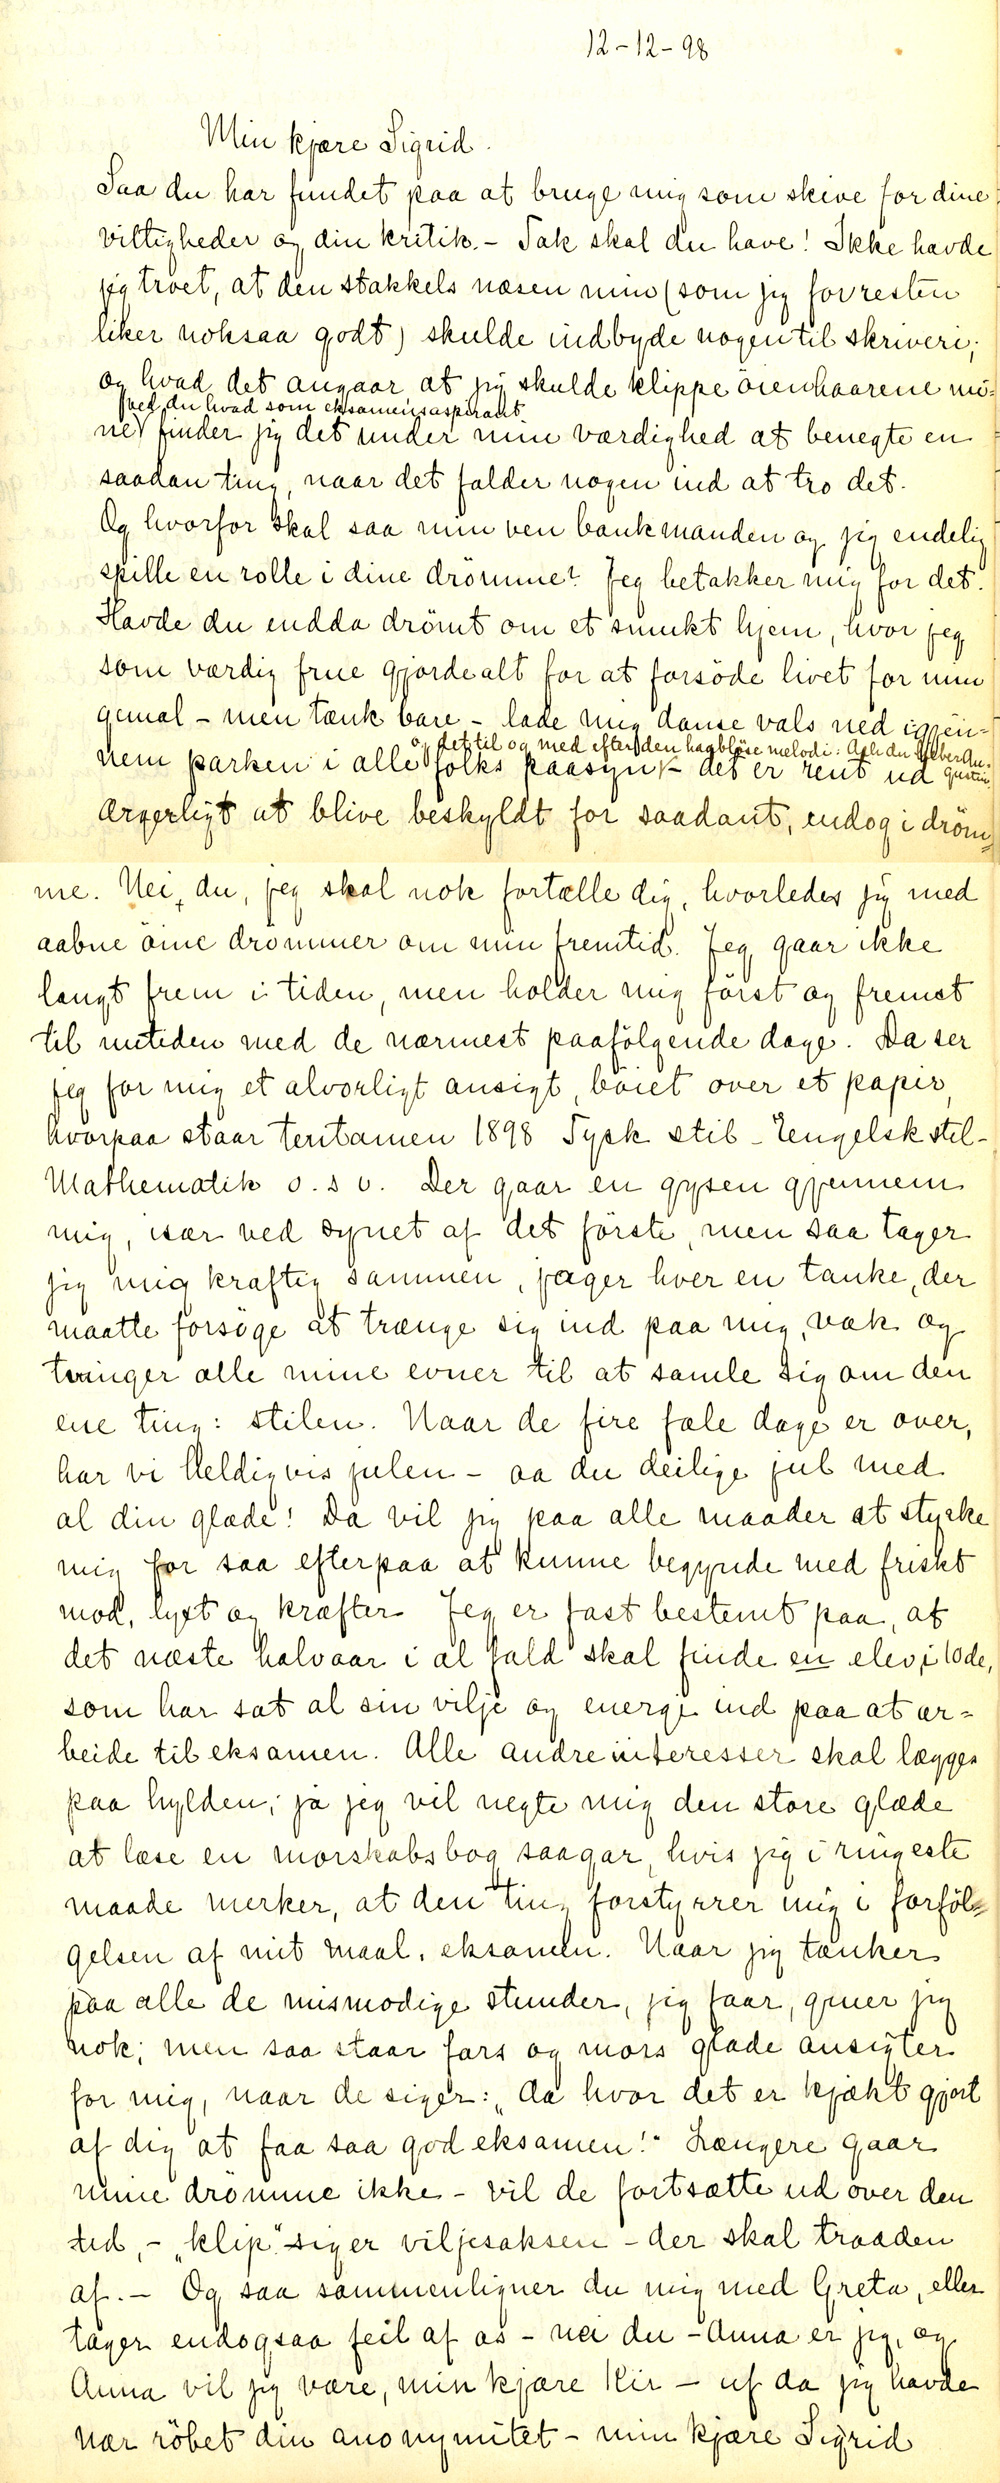 12-12-98
Min kjære Sigrid.
Saa du har fundet paa at bruge mig som skive for dine
vittigheder og din kritik. - Tak skal du have! Ikke havde
jeg troet, at den stakkels næsen min (som jeg forresten
liker noksaa godt) skulde indbyde nogen til skriveri;
og hvad det angaar at jeg skulde klippe öienhaarene mi=
ved du hvad som eksamensaspirant
ne finder jeg det under min værdighed at benegte en
saadan ting, naar det falder nogen ind at tro det.
Og hvorfor skal saa min ven bankmanden og jeg endelig
spille en rolle i dine drömme? Jeg betakker mig for det.
Havde du endda drömt om et smukt hjem, hvor jeg
som værdig frue gjorde alt for at forsöde livet for min
gemal - men tænk bare - lade mig danse vals ned igjen=
og det til og med efter den haabløse melodi: Ach du lieber Au=
gustin
nem parken i alle folks paasyn - det er rent ud
ærgerligt at blive beskyldt for saadant, endog i dröm=
me. Nei, du, jeg skal nok fortælle dig, hvorledes jeg med
aabne öine drömmer om min fremtid. Jeg gaar ikke
langt frem i tiden, men holder mig först og fremst
til nutiden med de nærmest paafölgende dage. Da ser
jeg for mig et alvorligt ansigt, böiet over et papir,
hvorpaa staar tentamen 1898 Tysk stil - Engelsk stil -
Mathematik o. s v. Der gaar en gysen gjennem
mig, især ved synet af det förste, men saa tager
jeg mig kraftig sammen, jager hver en tanke, der
maatte forsöge at trænge sig ind paa mig, væk og
tvinger alle mine evner til at samle sig om den
ene ting: stilen. Naar de fire fæle dage er over,
har vi heldigvis julen - aa du deilige jul med
al din glæde! Da vil jeg paa alle maader at styrke
mig for saa efterpaa at kunne begynde med friskt
mod, lyst og kræfter Jeg er fast bestemt paa, at
det næste halvaar i al fald skal finde en elev i 10de,
som har sat al sin vilje og energi ind paa at ar=
beide til eksamen. Alle andre interesser skal lægges
paa hylden; ja jeg vil negte mig den store glæde
at læse en morskabsbog saagar, hvis jeg i ringeste
maade merker, at den ting forstyrrer mig i forföl=
gelsen af mit maal, eksamen. Naar jeg tænker
paa alle de mismodige stunder, jeg faar, gruer jeg
nok; men saa staar fars og mors glade ansigter
for mig, naar de siger: „Aa hvor det er kjækt gjort
af dig at faa saa god eksamen!“ Længere gaar
mine drömme ikke - vil de fortsætte ud over den
tid, - „klip“ siger viljesaksen - der skal traaden
af. - Og saa sammenligner du mig med Greta, eller
tager endogsaa feil af os - nei du - Anna er jeg, og
Anna vil jeg være, min kjære Kir - uf da jeg havde
nær röbet din anonymitet - min kjære Sigrid